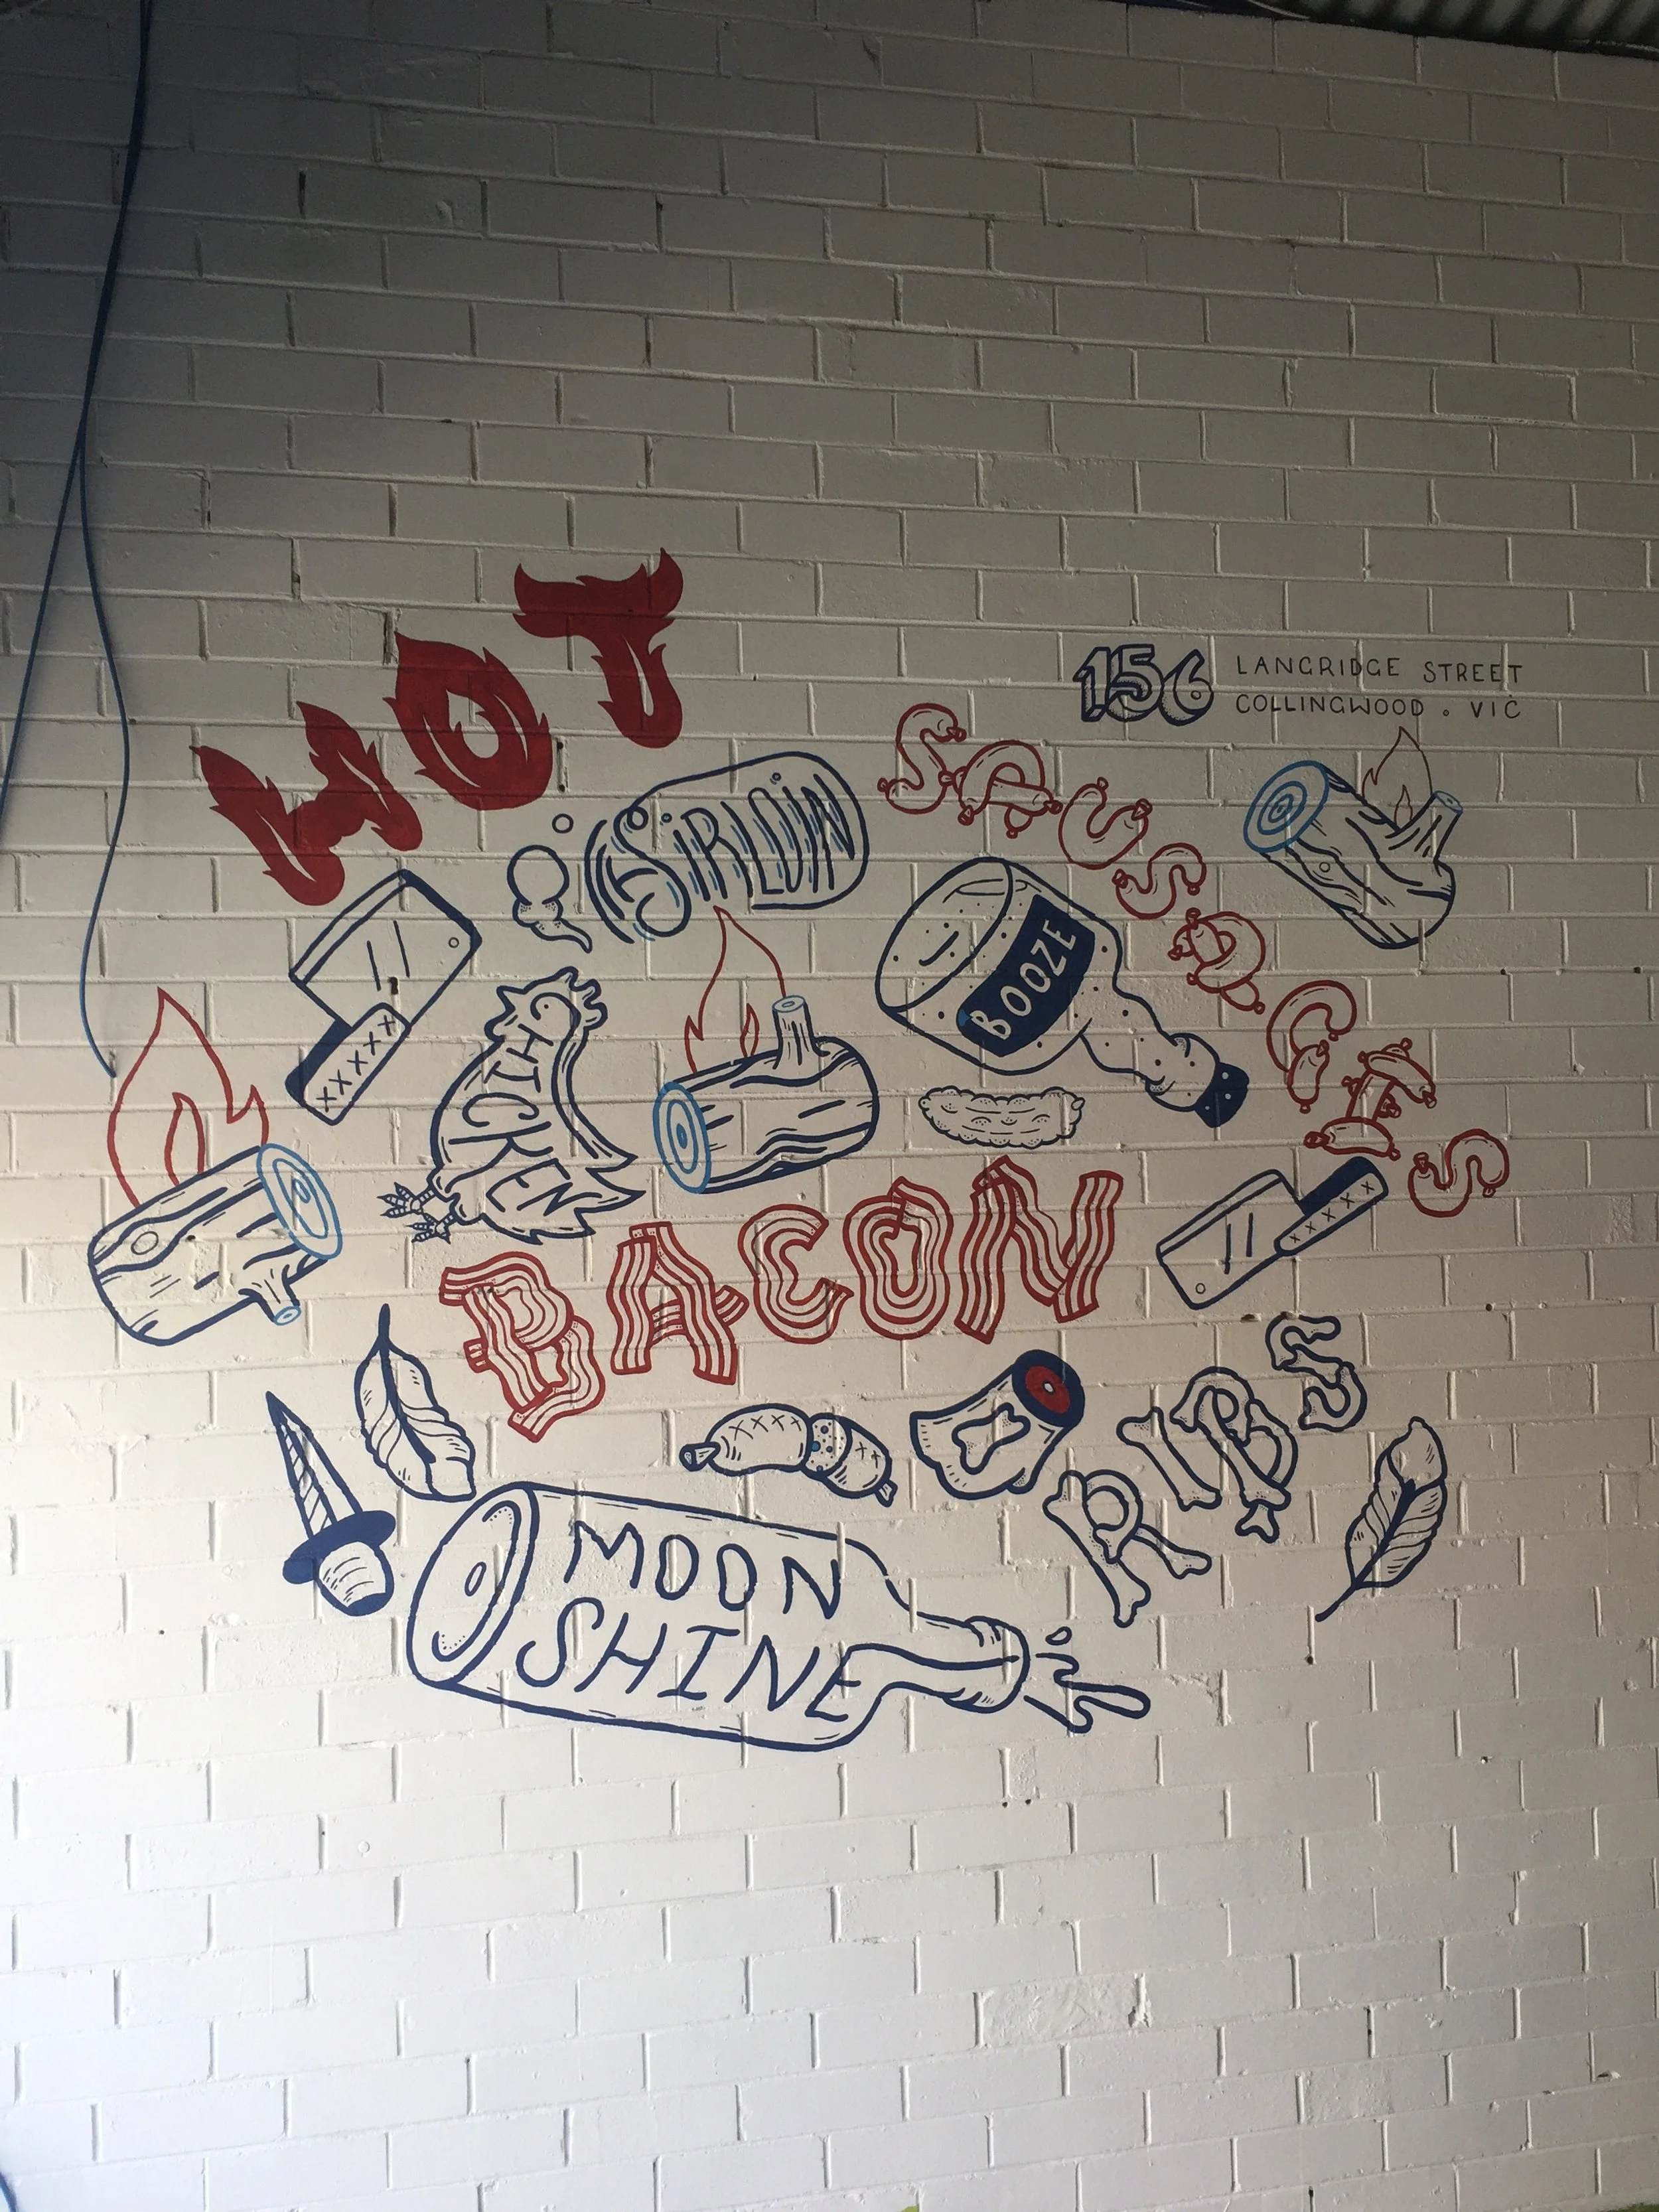 HOT
156 LANGRIDGE STREET
COLLINGWOOD . VIC
SIRLOIN
SAUSAGES
BOOZE
CHICKEN
BACON
RIBS
MOON
SHINE